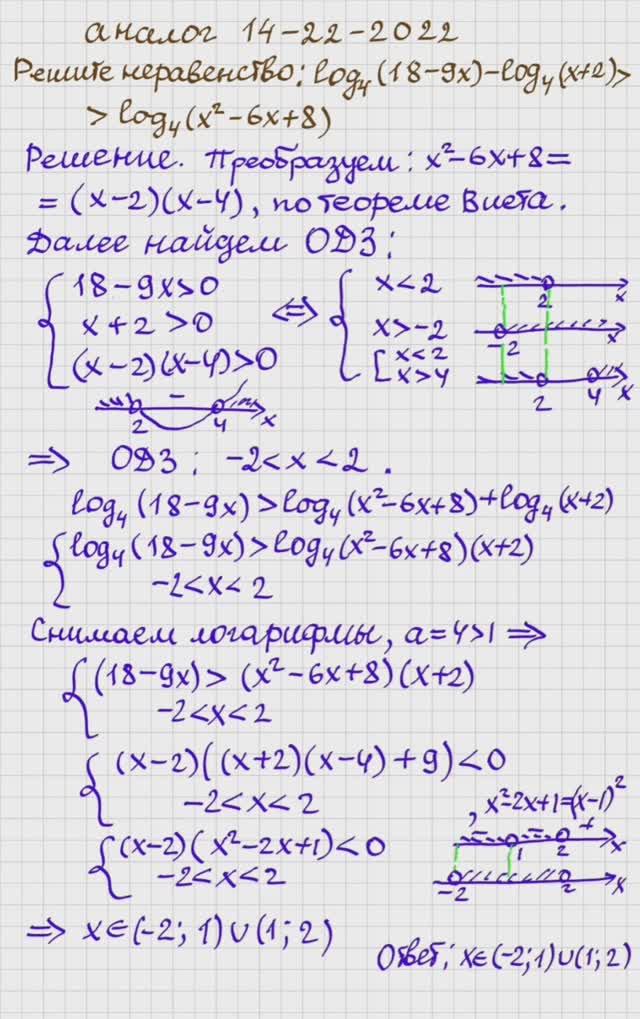 аналог 14-22-2022
Решите неравенство: log₄(18-9x)-log₄(x+2)>
> log₄(x²-6x+8)
Решение. Преобразуем: x²-6x+8=
= (x-2)(x-4), по теореме Виета.
Далее найдем ОДЗ:
{ 18-9x>0
x+2>0
(x-2)(x-4)>0
⇔ { x<2
x>-2
[ x<2
x>4
2 x
-2 x
2 4 x
- 2 4 x
⇒ ОДЗ: -2<x<2.
log₄(18-9x)>log₄(x²-6x+8)+log₄(x+2)
{ log₄(18-9x)>log₄(x²-6x+8)(x+2)
-2<x<2
Снимаем логарифмы, a=4>1 ⇒
{ (18-9x)>(x²-6x+8)(x+2)
-2<x<2
{ (x-2)((x+2)(x-4)+9)<0
-2<x<2
, x²-2x+1=(x-1)²
{ (x-2)(x²-2x+1)<0
-2<x<2
- - +
1 2 x
-2 2 x
⇒ x∈(-2; 1)∪(1; 2)
Ответ: x∈(-2;1)∪(1; 2)